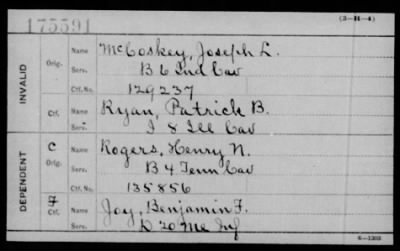 175591
(3-H-4)
INVALID
Orig. Name McCoskey, Joseph L.
Serv. B 6 Ind Cav
Ctf. No. 129237
Ctf. Name Ryan, Patrick B.
Serv. I 8 Ill Cav
DEPENDENT
C Orig. Name Rogers, Henry N.
Serv. B 4 Tenn Cav
Ctf. No. 135856
Ctf. Name Joy, Benjamin F.
Serv. D 20 Me Inf
6-1303